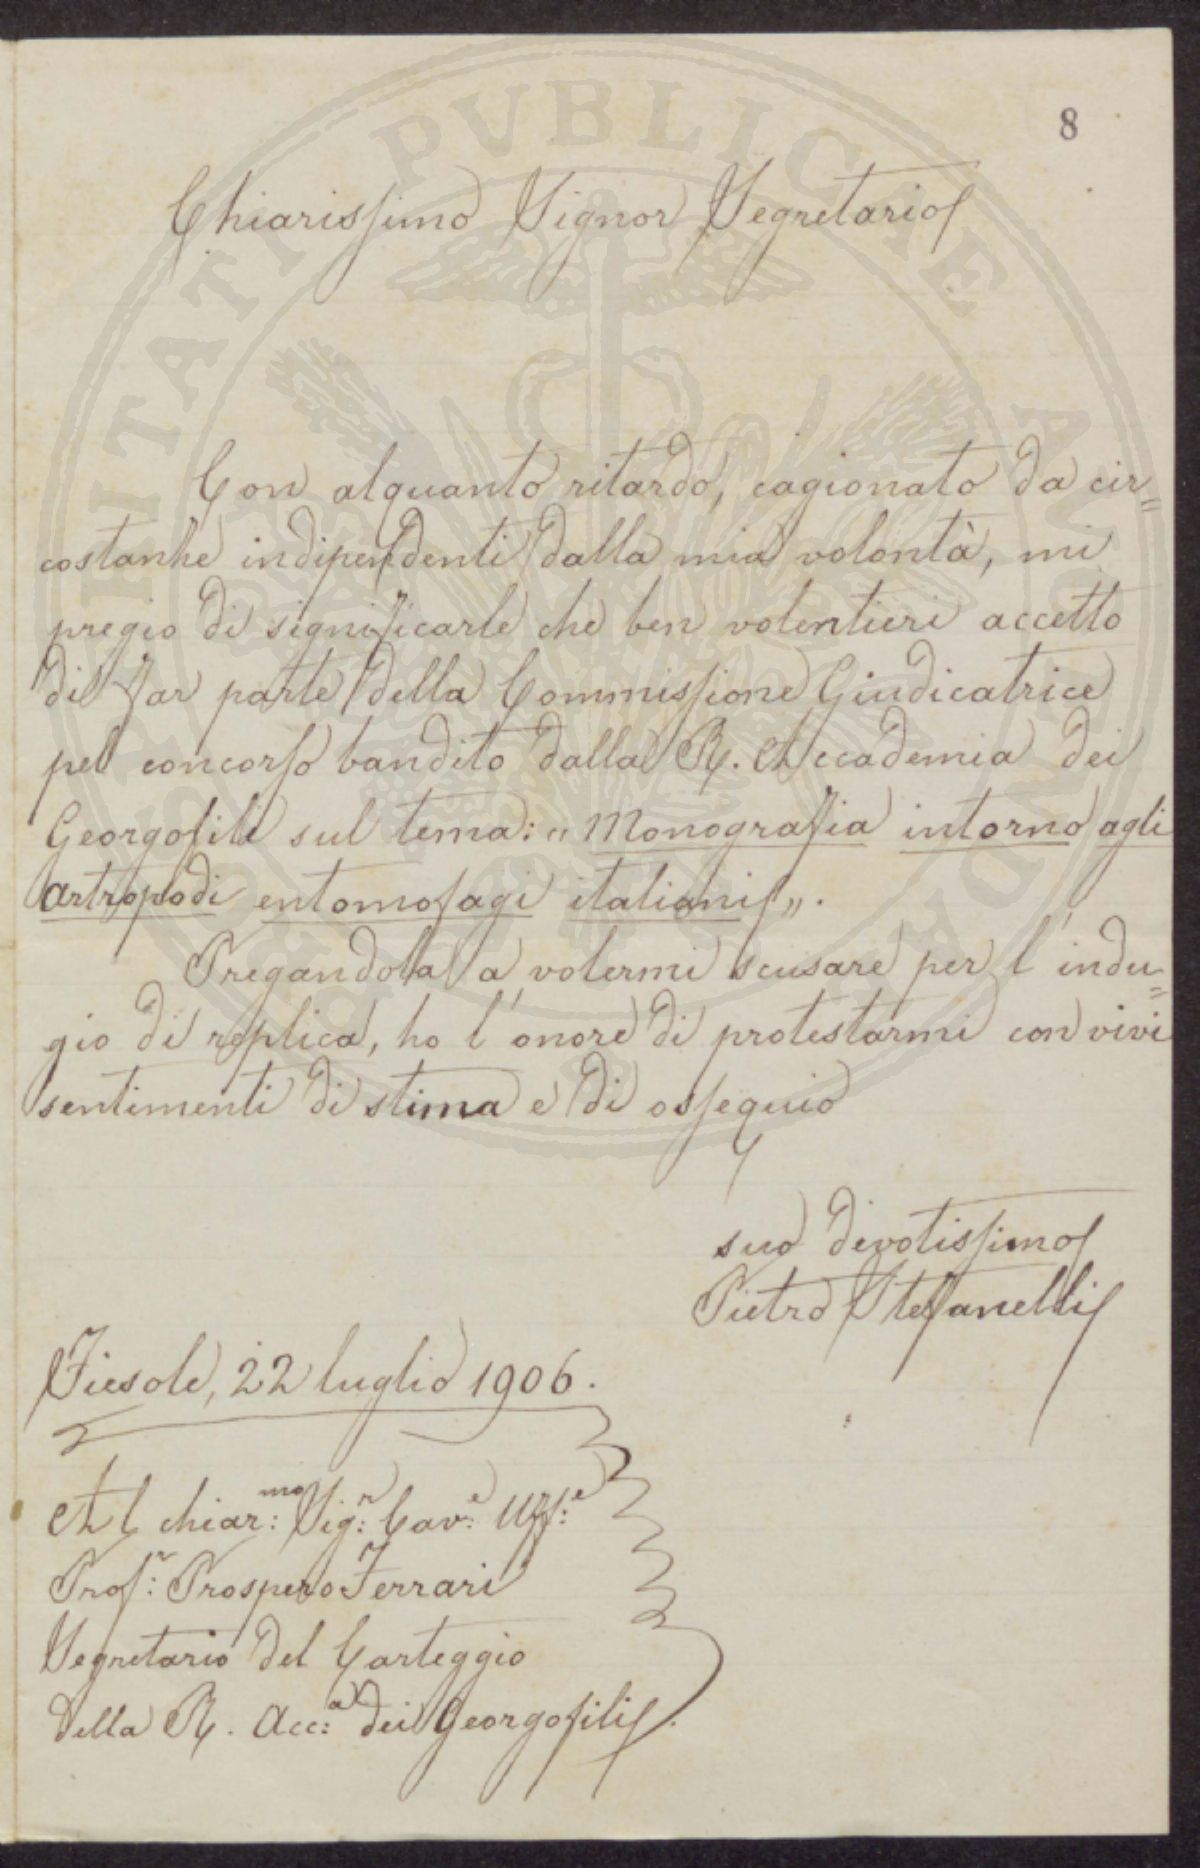 8
Chiarissimo Signor Segretario
Con alquanto ritardo, cagionato da cir=
costanze indipendenti dalla mia volontà, mi
pregio di significarle che ben volentieri accetto
di far parte della Commissione Giudicatrice
pel concorso bandito dalla R. Accademia dei
Georgofili sul tema: „Monografia intorno agli
artropodi entomofagi italiani„.
Pregandola a volermi scusare per l'indu=
gio di replica, ho l'onore di protestarmi con vivi
sentimenti di stima e di ossequio
suo devotissimo
Pietro Stefanelli
Fiesole, 22 luglio 1906.
Al chiar:mo Sig:r Cav:e Uff:e
Prof:r Prospero Ferrari
Segretario del Carteggio
della R. Acc:a dei Georgofili.
PROSPERITATI PUBLICAE AUGENDAE